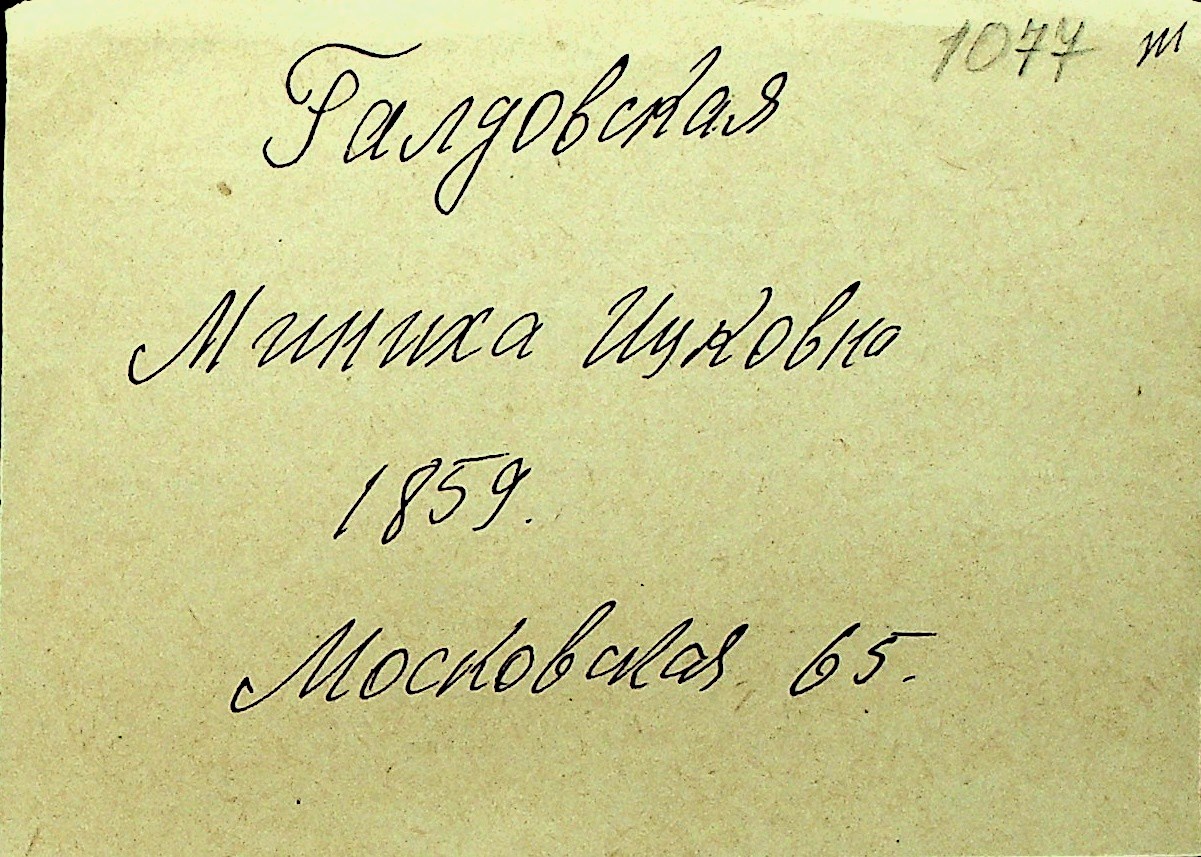 1077 т
Галдовская
Миниха Ицковна
1859.
Московская 65.